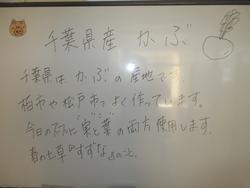 千葉県産 かぶ
千葉県は かぶ の 産地です。
柏市や松戸市でよく作っています。
今日の に 実と葉の両方使用します。
春の七草"すずな"のこと。